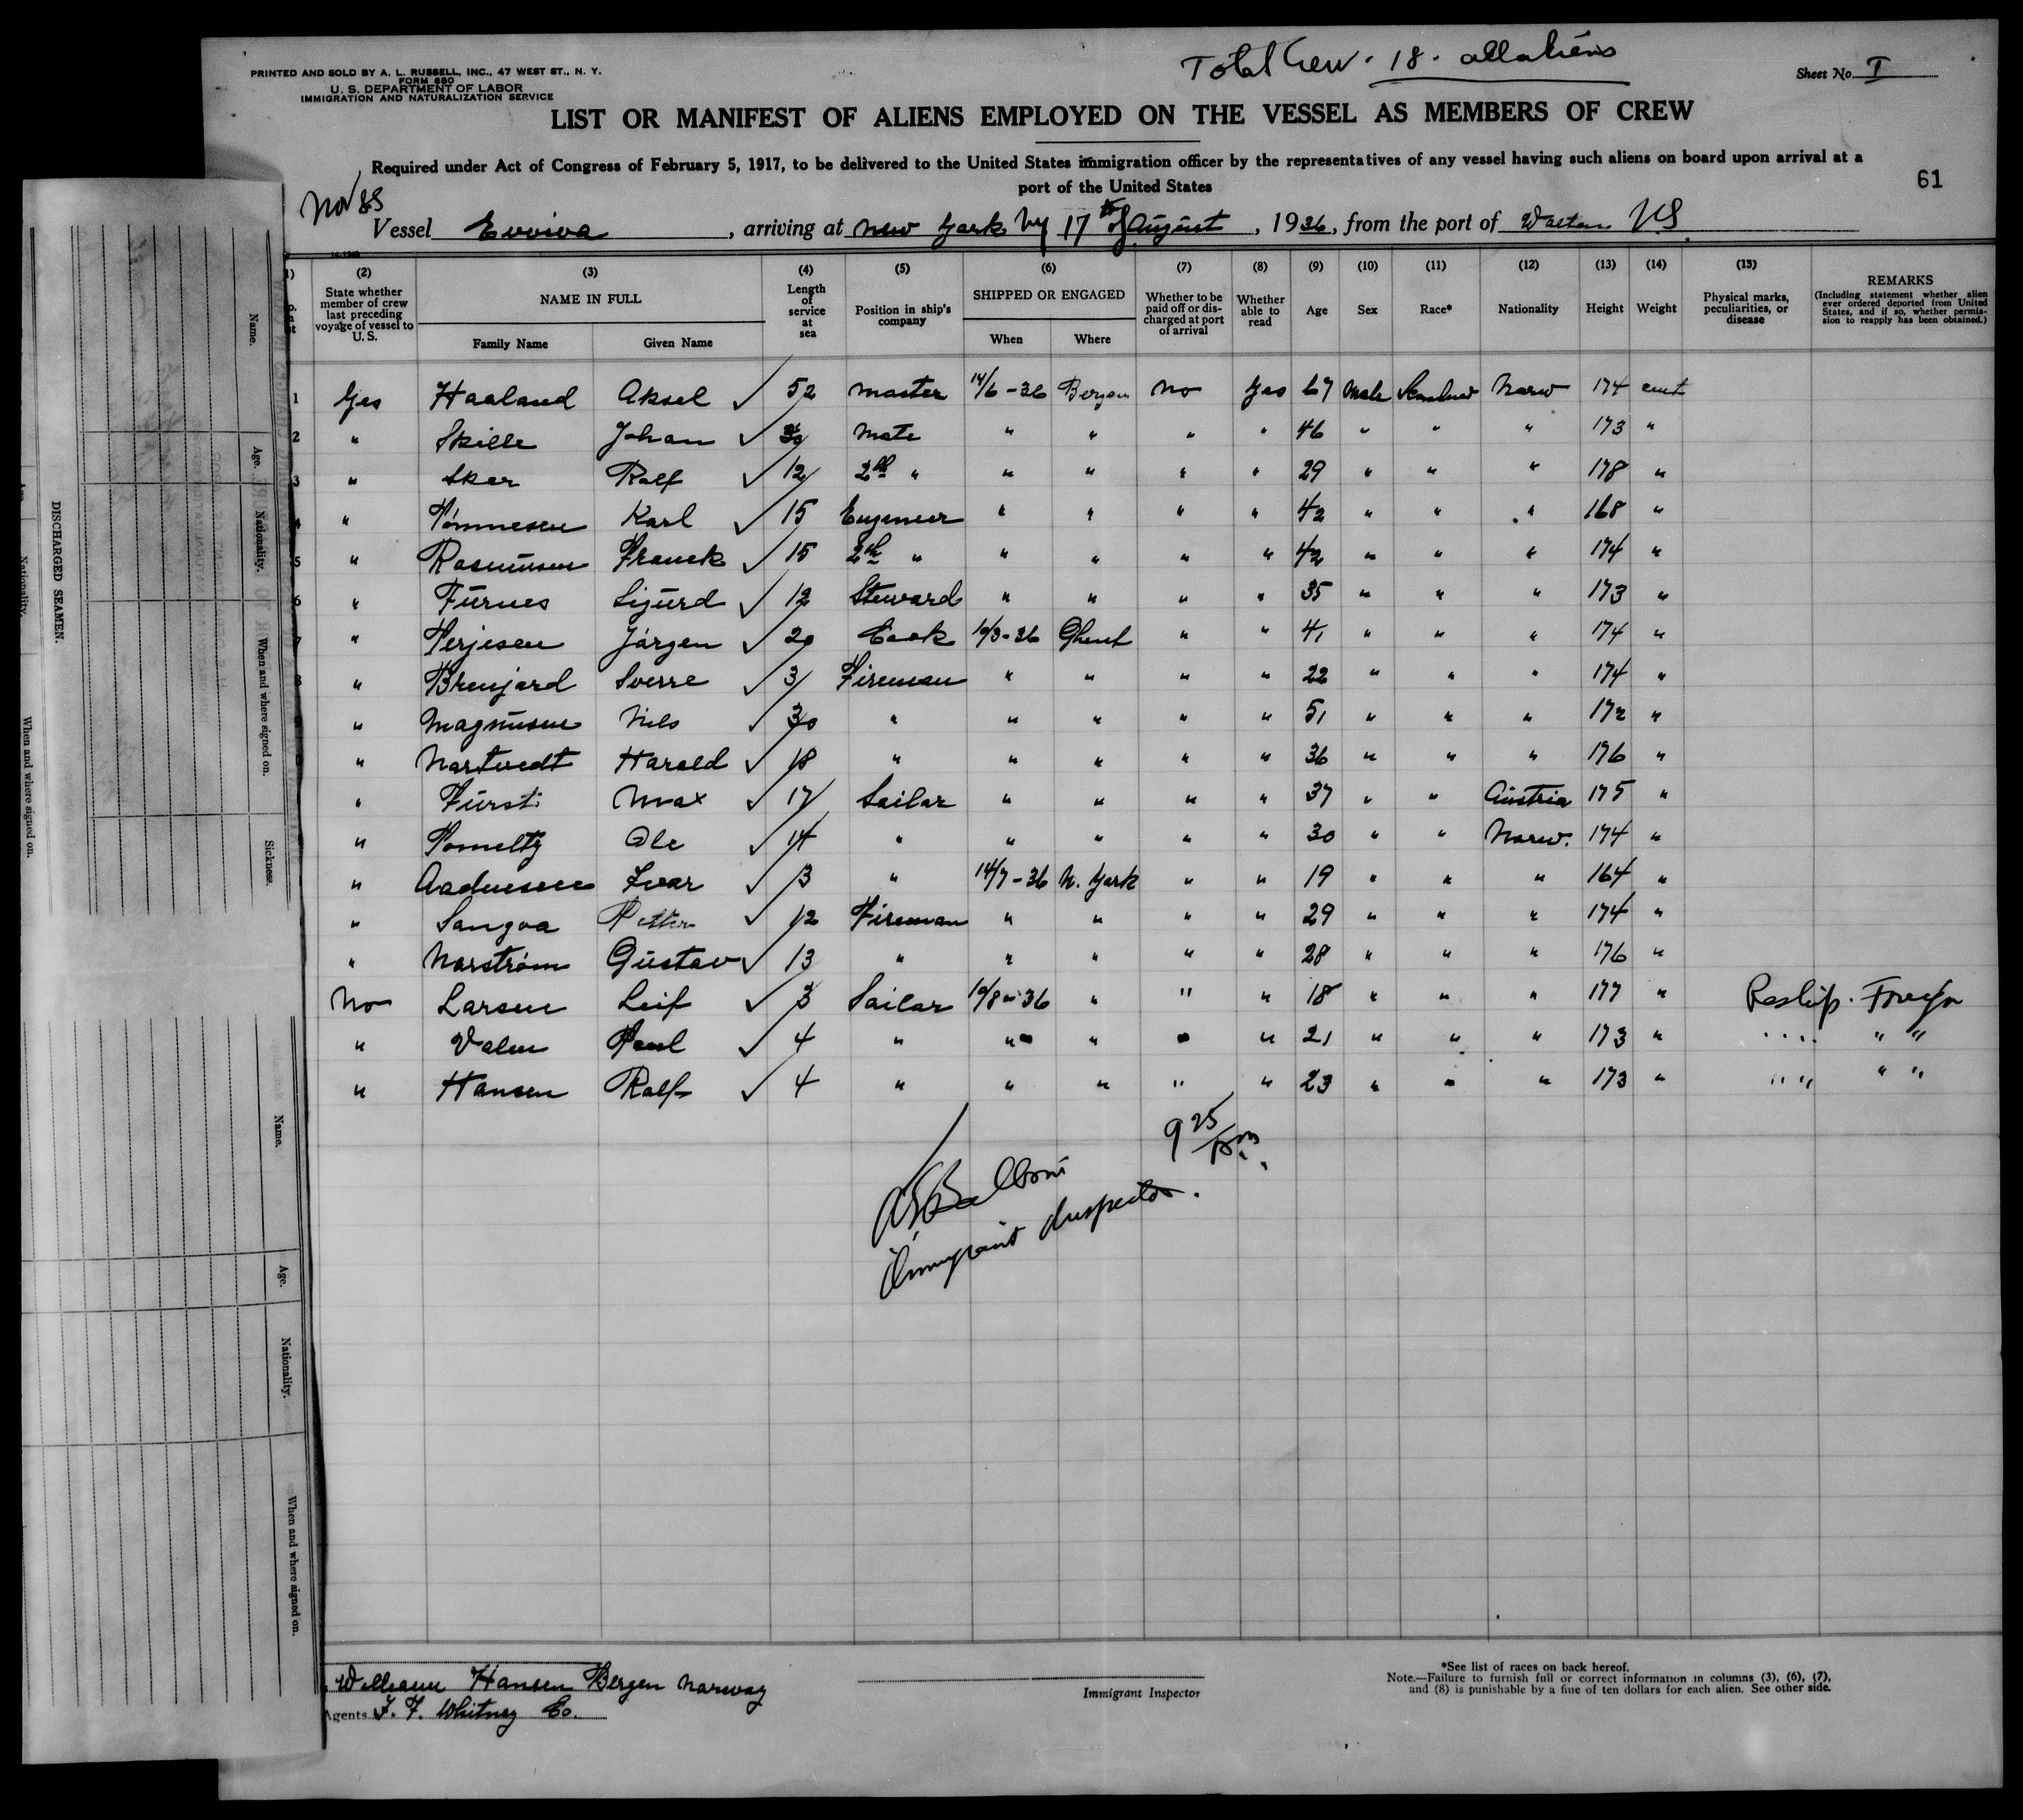 Total Crew. 18. all aliens
PRINTED AND SOLD BY A. L. RUSSELL, INC., 47 WEST ST., N. Y.
FORM 680
U. S. DEPARTMENT OF LABOR
IMMIGRATION AND NATURALIZATION SERVICE
Sheet No. I
LIST OR MANIFEST OF ALIENS EMPLOYED ON THE VESSEL AS MEMBERS OF CREW
Required under Act of Congress of February 5, 1917, to be delivered to the United States immigration officer by the representatives of any vessel having such aliens on board upon arrival at a
port of the United States
61
Nor SS
Vessel Evviva, arriving at New York Ny 17th of August, 1936, from the port of Walton N.S.
(2) (3) (4) (5) (6) (7) (8) (9) (10) (11) (12) (13) (14) (15)
State whether member of crew last preceding voyage of vessel to U. S.
NAME IN FULL
Family Name Given Name
Length of service at sea
Position in ship's company
SHIPPED OR ENGAGED
When Where
Whether to be paid off or discharged at port of arrival
Whether able to read
Age Sex Race* Nationality Height Weight
Physical marks, peculiarities, or disease
REMARKS
(Including statement whether alien ever ordered deported from United States, and if so, whether permission to reapply has been obtained.)
1 Yes Haaland Aksel ✓ 52 Master 14/6-36 Bergen No Yes 67 Male Scandnav Norw 174 cmt
2 " Skille Johan ✓ 30 Mate " " " " 46 " " " 173 "
3 " Sker Rolf ✓ 12 2nd " " " " " 29 " " " 178 "
4 " Tönnesen Karl ✓ 15 Engeneer " " " " 42 " " " 168 "
5 " Rasmussen Franck ✓ 15 2nd " " " " " 42 " " " 174 "
6 " Furnes Sigurd ✓ 12 Steward " " " " 35 " " " 173 "
7 " Terjesen Jørgen ✓ 20 Cook 10/3-36 Ghent " " 41 " " " 174 "
8 " Brenjord Sverre ✓ 3 Fireman " " " " 22 " " " 174 "
" Magnusen Nils ✓ 30 " " " " " 51 " " " 172 "
" Nortvedt Harald ✓ 18 " " " " " 36 " " " 176 "
" Fürst Max ✓ 17 Sailor " " " " 37 " " Austria 175 "
" Pomeltz Ole ✓ 14 " " " " " 30 " " Norw. 174 "
" Aadnesen Ivar ✓ 3 " 14/7-36 N. York " " 19 " " " 164 "
" Sangoa Petter ✓ 12 Fireman " " " " 29 " " " 174 "
" Norström Gustav ✓ 13 " " " " " 28 " " " 176 "
No Larsen Leif ✓ 3 Sailor 10/8-36 " " " 18 " " " 177 " Reship. Foreign
" Valen Paul ✓ 4 " " " " " 21 " " " 173 " " " " "
" Hansen Rolf ✓ 4 " " " " " 23 " " " 173 " " " " "
9 25
Immigrant Inspector.
Williams Hansen Bergen Norway
Agents F. F. Whitney Co.
Immigrant Inspector
*See list of races on back hereof.
Note.—Failure to furnish full or correct information in columns (3), (6), (7),
and (8) is punishable by a fine of ten dollars for each alien. See other side.
DISCHARGED SEAMEN.
Name. Age. Nationality. When and where signed on. Sickness.
Name. Age. Nationality. When and where signed on.
Nationality. When and where signed on.